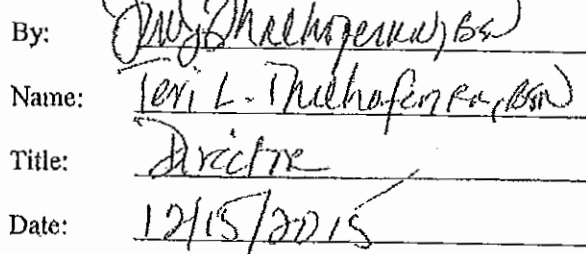 By:
Name: Teri L. Thelhofen RN, BSN
Title: Director
Date: 12/15/2015